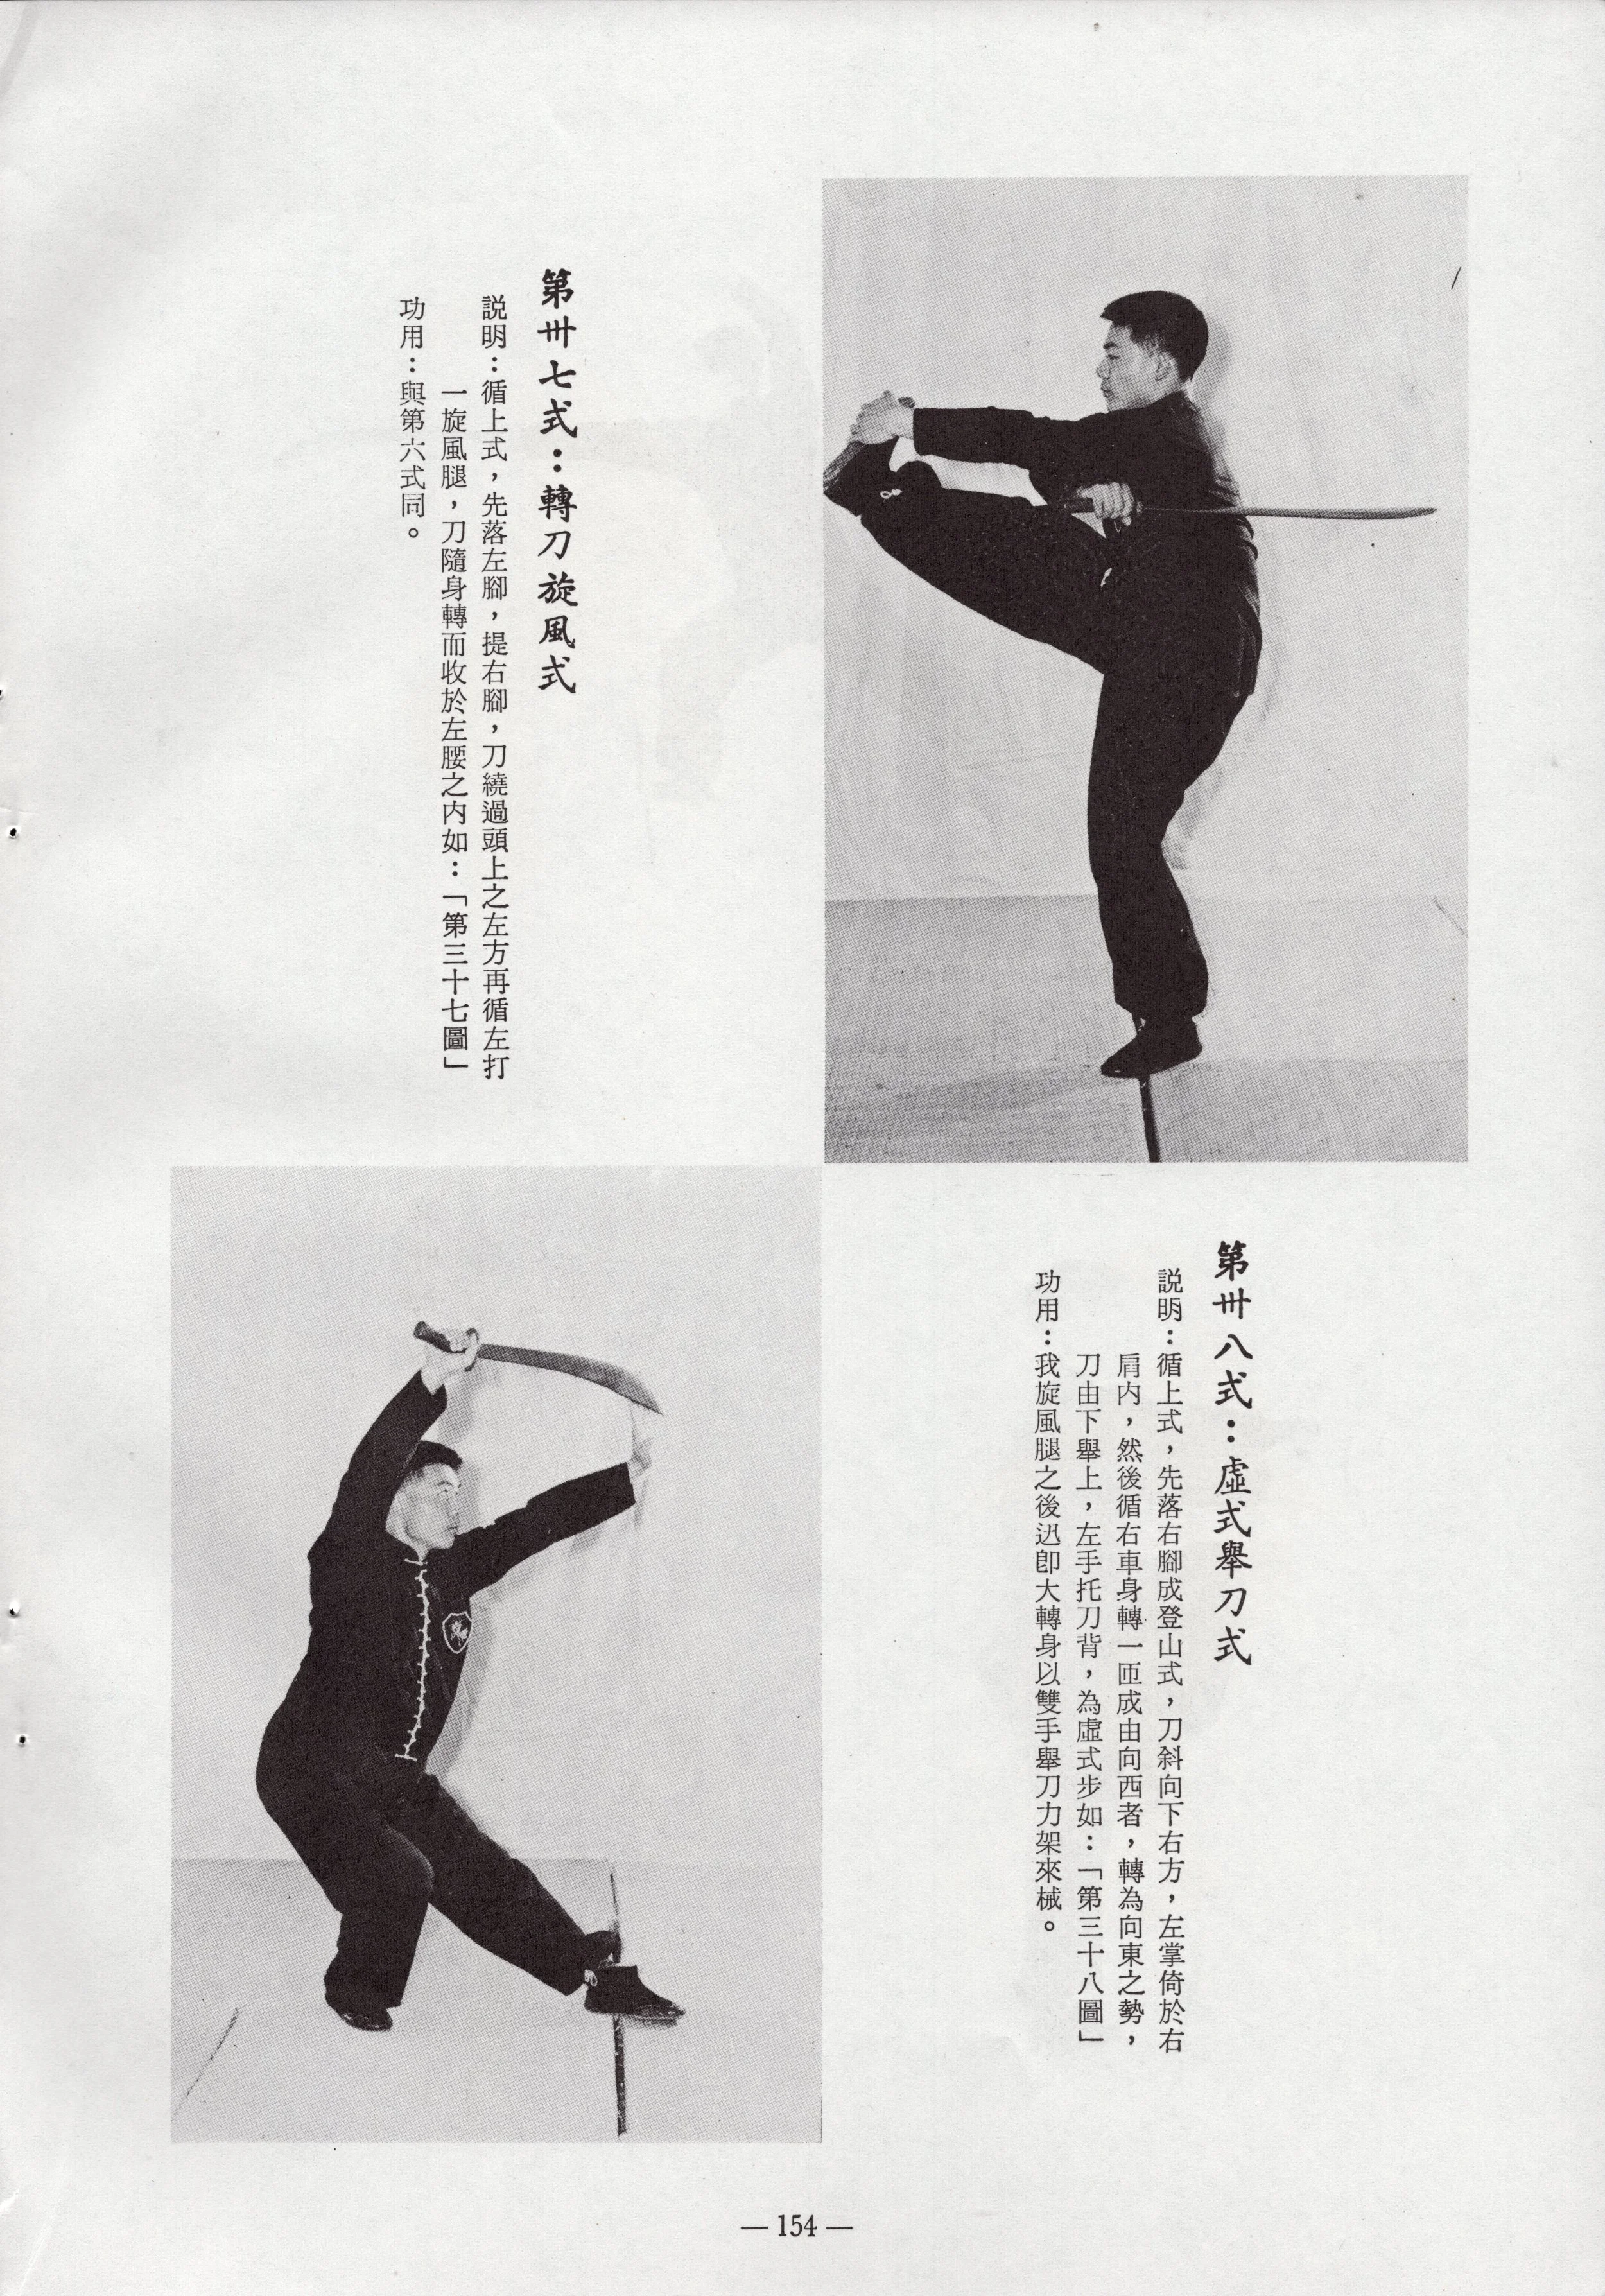 第卅七式：轉刀旋風式
説明：循上式，先落左腳，提右腳，刀繞過頭上之左方再循左打
一旋風腿，刀隨身轉而收於左腰之内如：「第三十七圖」
功用：與第六式同。
第卅八式：虛式舉刀式
説明：循上式，先落右腳成登山式，刀斜向下右方，左掌倚於右
肩内，然後循右車身轉一匝成由向西者，轉為向東之勢，
刀由下舉上，左手托刀背，為虛式步如：「第三十八圖」
功用：我旋風腿之後迅卽大轉身以雙手舉刀力架來械。
— 154 —